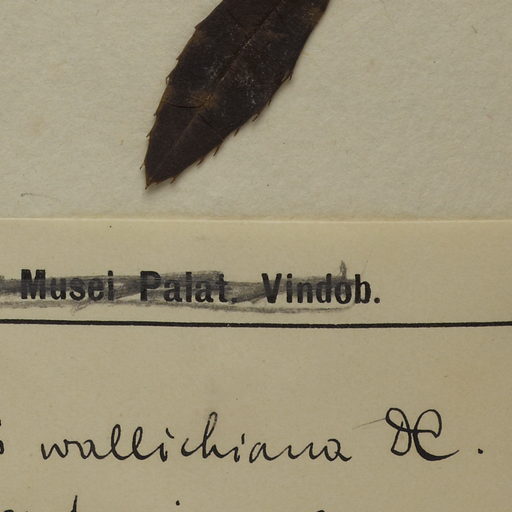 Musei Palat. Vindob.
wallichiana DC.